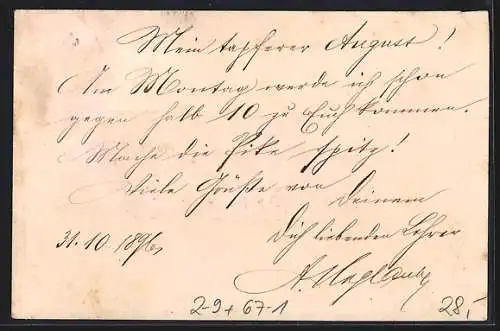 Mein tapferer August!
Am Montag werde ich schon
gegen halb 10 zu Euch kommen.
Mache die Pike spitz!
Viele Grüße von
Deinem
Dich liebenden Lehrer
31.10.1896
2-9+67-1
28,-